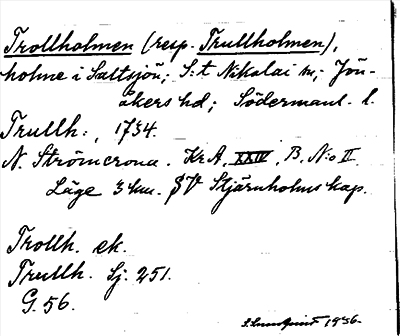 Trollholmen (resp. Trullholmen),
holme i Saltsjön; S:t Nikolai sn; Jön-
åkers hd; Södermanl. l.
Trullh:, 1734.
N. Strömcrona. Kr A, XXIV, B. N:o II.
Läge 3 km. SV Stjärnholms kap.
Trollh. ek.
Trullh. Sj. 251.
G. 56.
S. Lundqvist 1936.